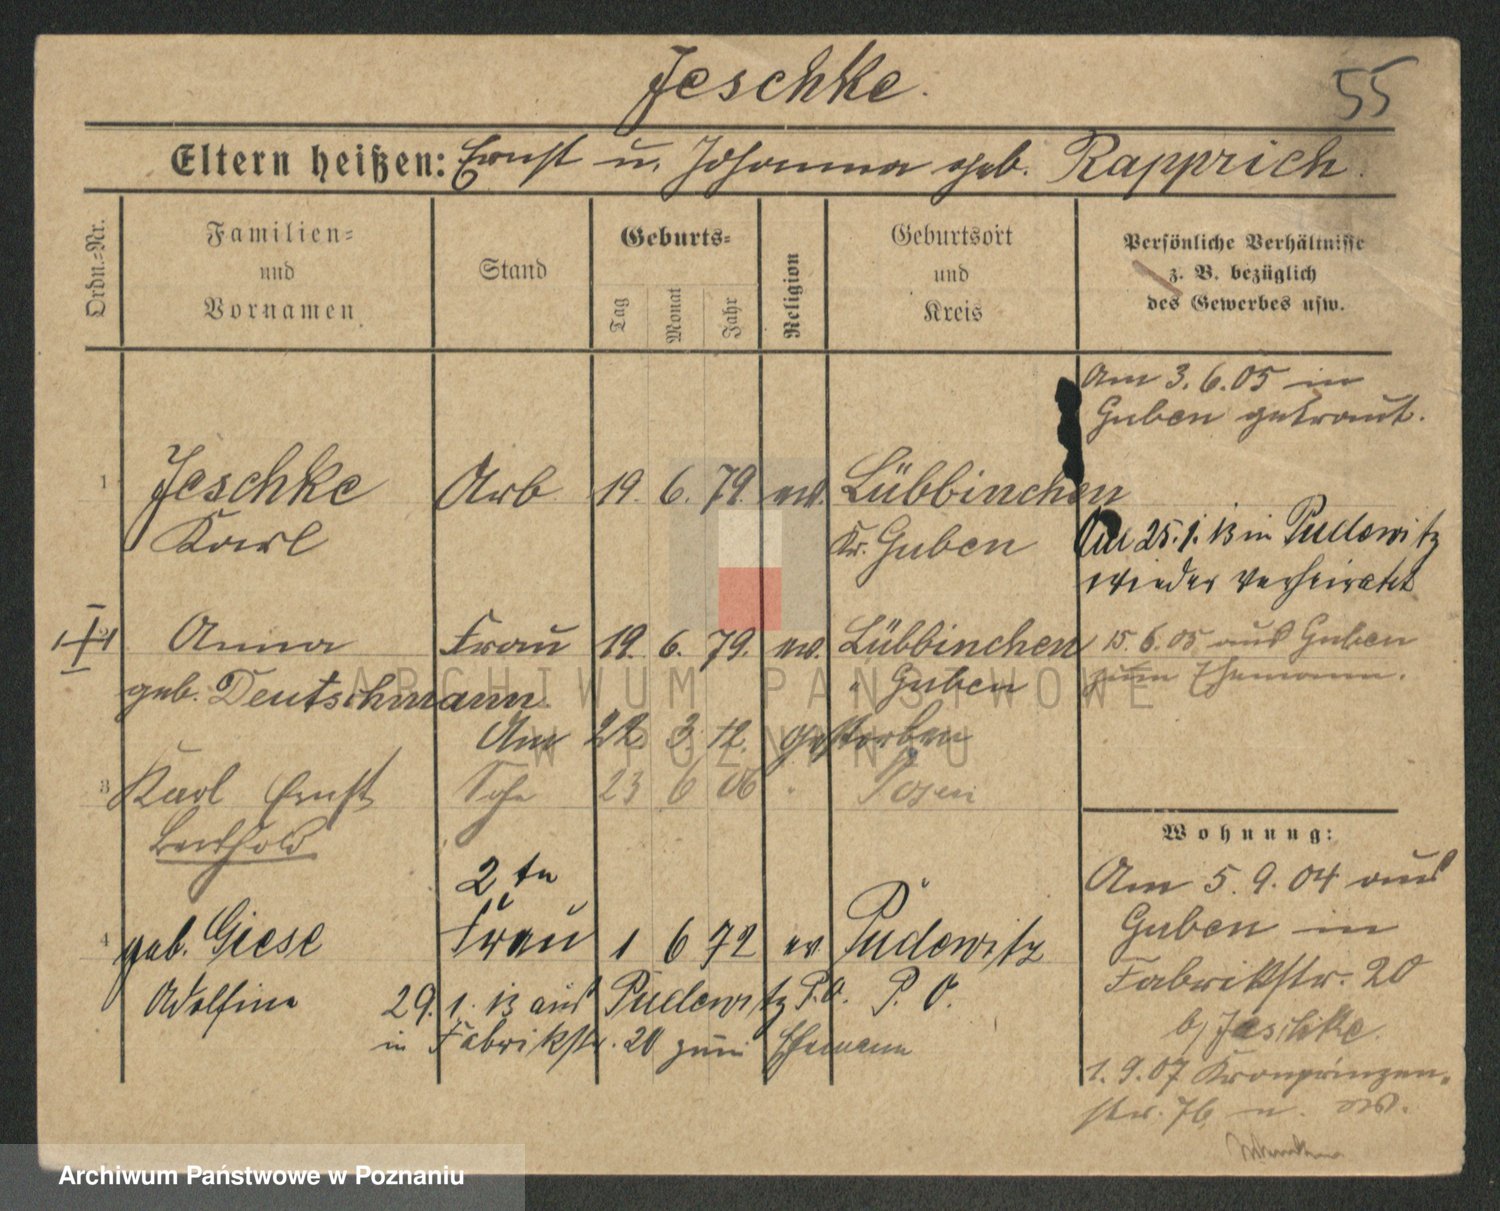 Jeschke.
55
Eltern heißen: Ernst u. Johanna geb. Rapprich.
Ordn.-Nr.
Familien-
und
Vornamen
Stand
Geburts-
Tag
Monat
Jahr
Religion
Geburtsort
und
Kreis
Persönliche Verhältnisse
z. B. bezüglich
des Gewerbes usw.
Am 3.6.05 in
Guben getraut.
1 Jeschke Arb 19. 6. 79. ev. Lübbinchen
Karl Kr. Guben
Am 25.1.13 in Pudewitz
wieder verheiratet
Anna Frau 19. 6. 79. ev. Lübbinchen
geb. Deutschmann " Guben
15.6.05 aus Guben
zum Ehemann.
Am 22. 3. 12. gestorben
3 Karl Ernst Sohn 23 6 06 " Posen
Berthold
2te
4 geb. Giese Frau 1 6 72 ev Pudewitz
Adolfine 29. 1. 13 aus Pudewitz P.O. P. O.
in Fabrikstr. 20 zum Ehemann
Wohnung:
Am 5.9.04 aus
Guben in
Fabrikstr. 20
b/ Jeschke.
1.9.07 Kronprinzen-
str. 76
ARCHIWUM PAŃSTWOWE
W POZNANIU
Archiwum Państwowe w Poznaniu